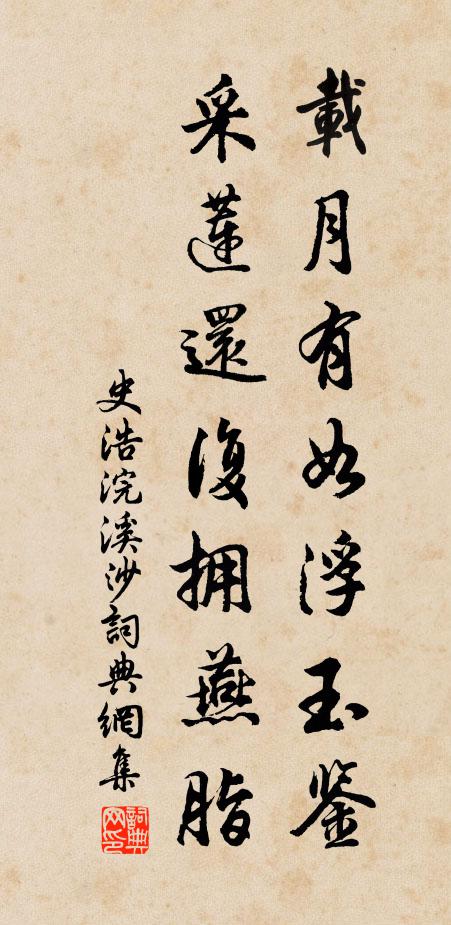 載月有如浮玉鉴
采蓮還復拥燕脂
史浩浣溪沙詞典網集
詞典网印